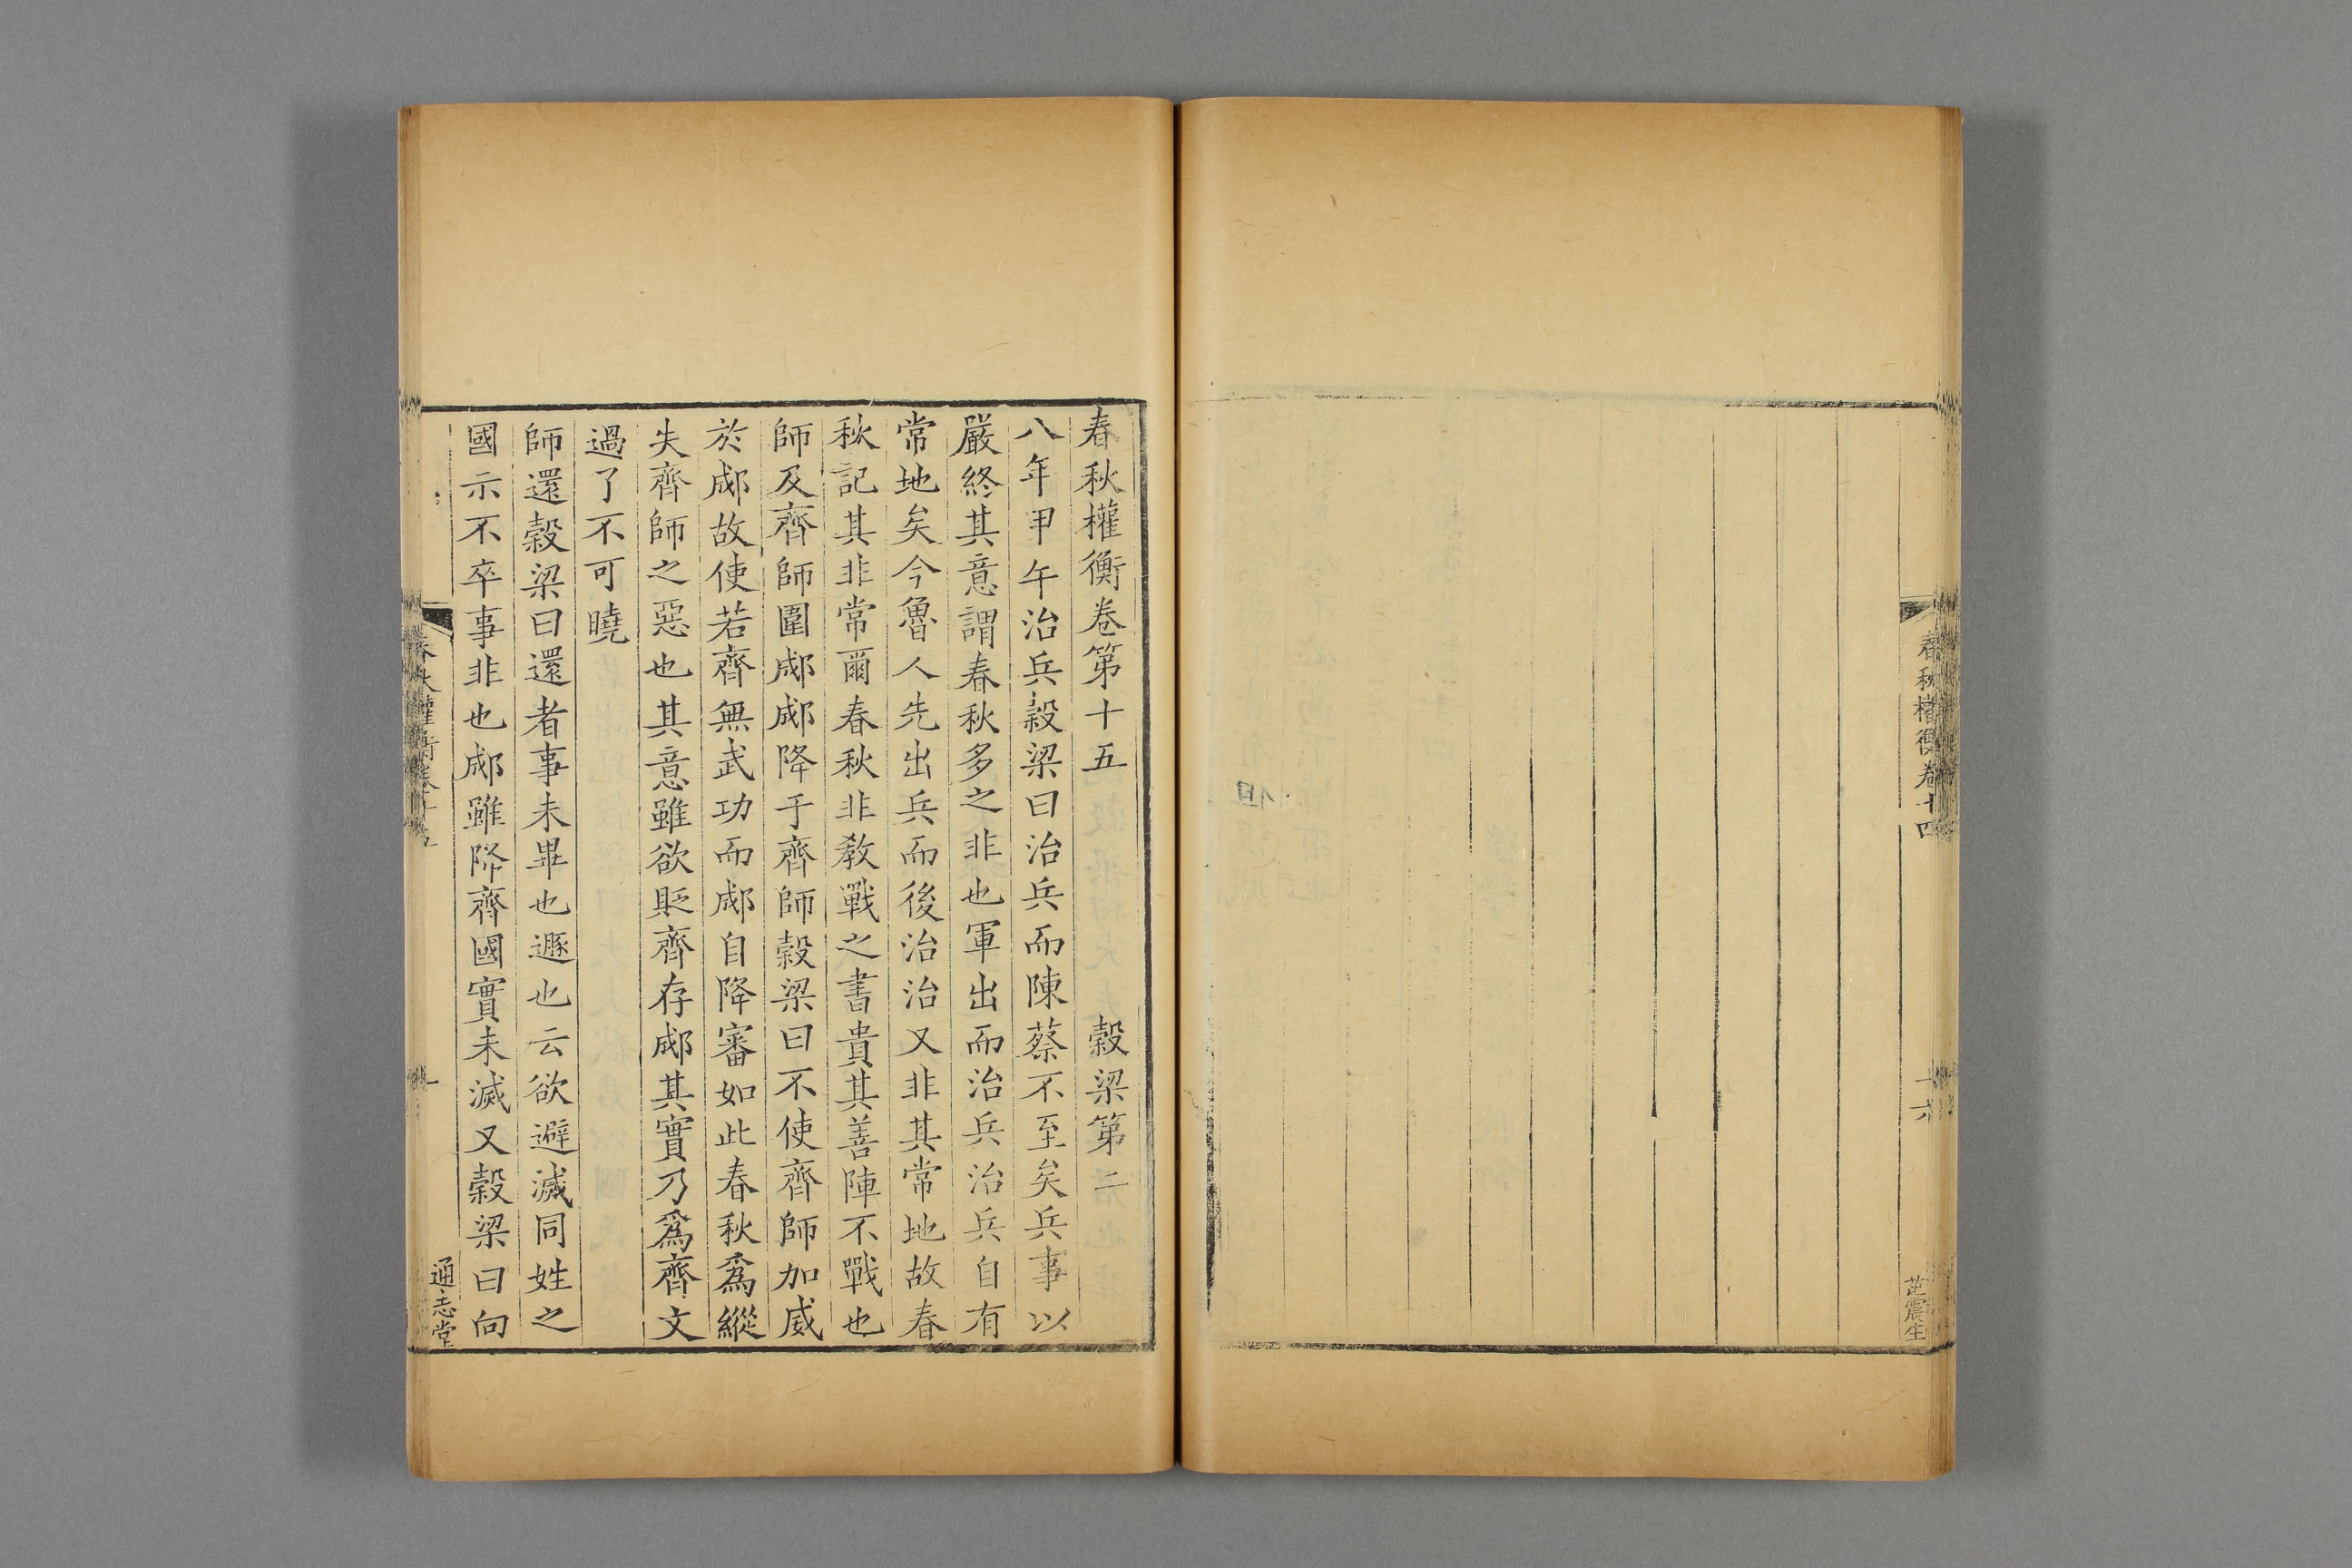 春秋權衡卷十四
十六
芷震生
春秋權衡卷第十五 穀梁第二
八年甲午治兵穀梁曰治兵而陳蔡不至矣兵事以
嚴終其意謂春秋多之非也軍出而治兵治兵自有
常地矣今魯人先出兵而後治治又非其常地故春
秋記其非常爾春秋非教戰之書貴其善陣不戰也
師及齊師圍郕郕降于齊師穀梁曰不使齊師加威
於郕故使若齊無武功而郕自降審如此春秋為縱
失齊師之惡也其意雖欲貶齊存郕其實乃為齊文
過了不可曉
師還穀梁曰還者事未畢也遯也云欲避滅同姓之
國示不卒事非也郕雖降齊國實未滅又穀梁曰向
春秋權衡卷十五
一
通志堂